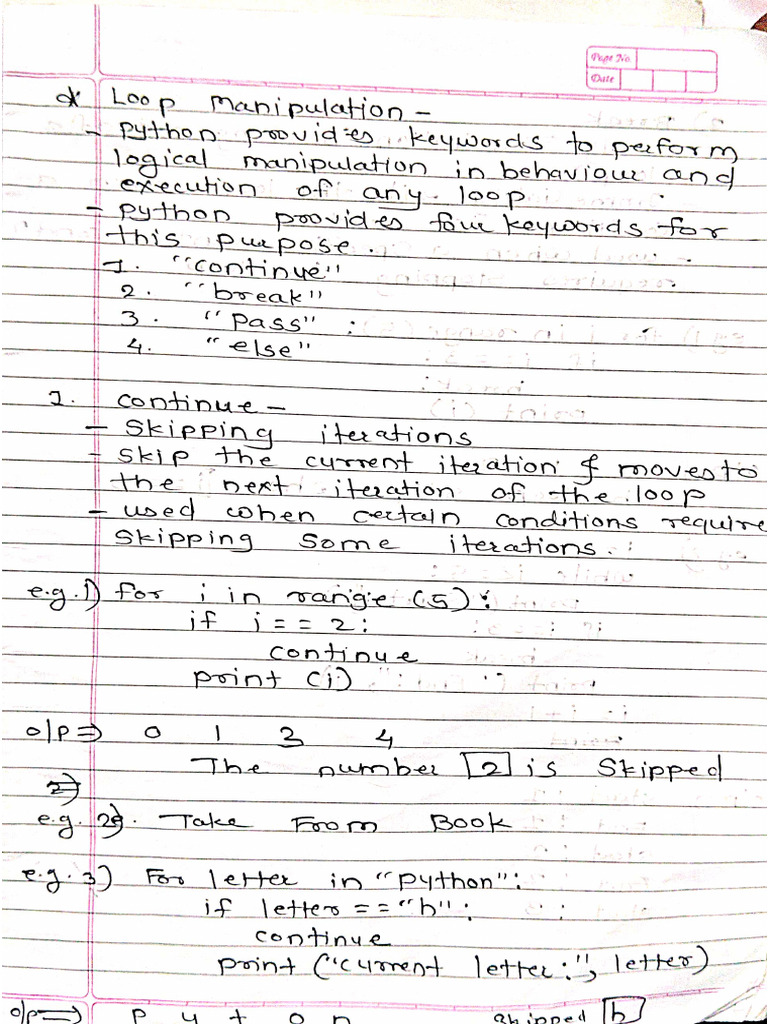 Page No.
Date
* Loop Manipulation -
- Python provides keywords to perform
logical manipulation in behaviour and
execution of any loop
- Python provides four keywords for
this purpose.
1. "continue"
2. "break"
3. "Pass" :
4. "else"
1. Continue -
- Skipping iterations
- Skip the current iteration & moves to
the next iteration of the loop
- used when certain conditions require
skipping some iterations.
e.g.1) for i in range (5):
if i == 2:
continue
print (i)
o/p ⇒ 0 1 3 4
The number 2 is Skipped
2)
e.g. 2). Take From Book
e.g. 3) For letter in "python":
if letter == "h":
continue
print ("Current letter:", letter)
o/p ⇒ P y t o n Skipped h